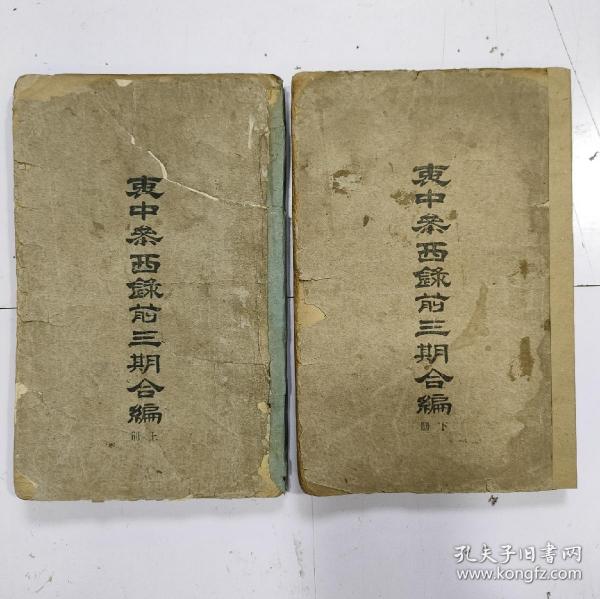 衷中参西錄前三期合編
上冊
衷中参西錄前三期合編
下冊
孔夫子旧书网
www.kongfz.com